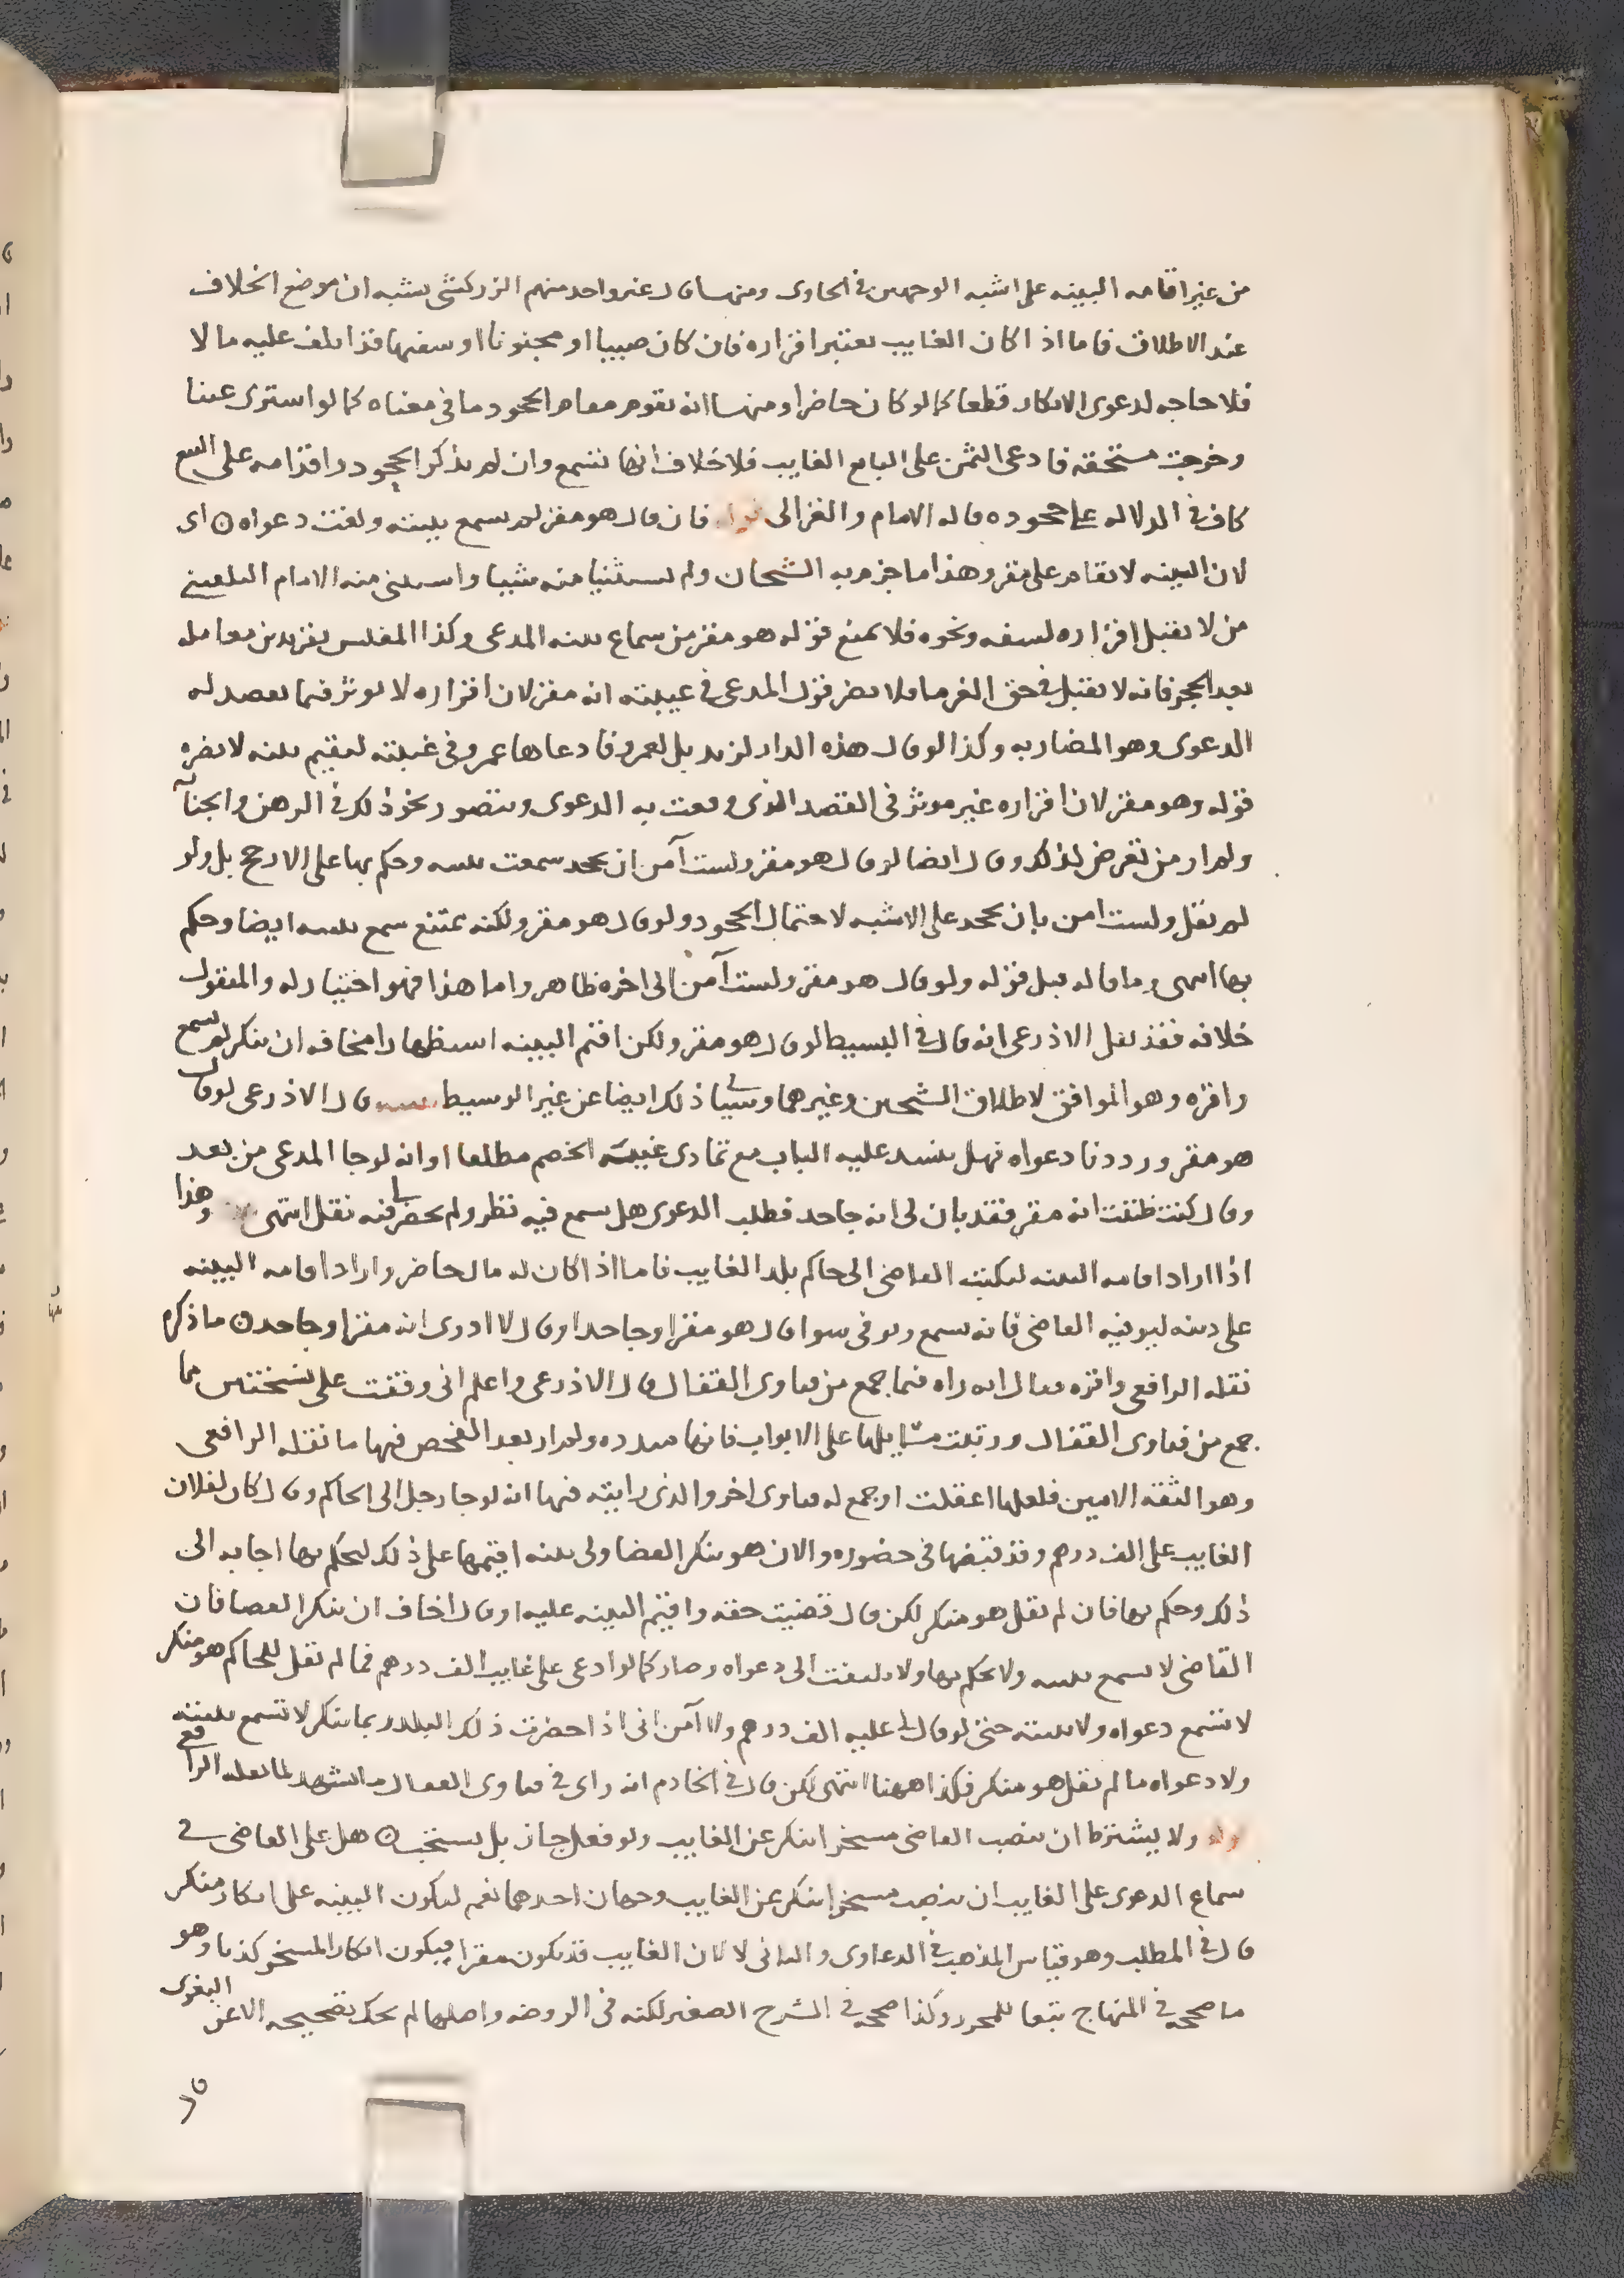 من غير اقامه البينه على اشبه الوجهين في الحاوى ومنها قال غير واحد منهم الزركشى يشبه ان موضع الخلاف
عند الاطلاق فاما اذا كان الغايب يعتبر اقراره فان كان صبيا او مجنونا او سفيها قد اتلف عليه مالا
فلا حاجه لدعوى الانكار قطعا كما لو كان حاضرا ومنها انه يقوم مقام الجحود ما في معناه كما لو اشترى عينا
وخرجت مستحقه فادعى الثمن على البايع الغايب فلا خلاف انها تسمع وان لم يذكر الجحود واقدامه على البيع
كاف في الدلاله على جحوده قاله الامام والغزالى قوله فان قال هو مقر لم تسمع بينته ولغت دعواه ٥ اى
لان البينه لا تقام على مقر وهذا ما جزم به الشيخان ولم يستثنيا منه شيا واستثنى منه الامام البلقينى
من لا يقبل اقراره لسفه ونحوه فلا يمنع قوله هو مقر من سماع بينه المدعى وكذا المفلس يقر بدين معامله
بعد الحجر فانه لا يقبل في حق الغرما فلا يضر قول المدعى في غيبته انه مقر لان اقراره لا يوثر فيما يقصد له
الدعوى وهو المضاربه وكذا لو قال هذه الدار لزيد بل لعمرو فادعاها عمرو في غيبته ليقيم بينه لا يضره
قوله وهو مقر لان اقراره غير موثر في القصد الذى وقعت به الدعوى ويتصور نحو ذلك في الرهن والجناية
ولم ار من تعرض لذلك وقال ايضا لو قال هو مقر ولست آمن ان يجحد سمعت بينته وحكم بها على الارجح بل ولو
لم يقل ولست امن بان يجحد على الاشبه لاحتمال الجحود ولو قال هو مقر ولكنه يمتنع سمع بينته ايضا وحكم
بها انتهى وما قاله قبل قوله ولو قال هو مقر ولست آمن الى اخره ظاهر واما هذا فهو اختيار له والمنقول
خلافه فقد نقل الاذرعى انه قال في البسيط لو قال هو مقر ولكن اقيم البينه استظهارا مخافه ان ينكر لم تسمع
واقره وهو الموافق لاطلاق الشيخين وغيرهما وسياتى ذلك ايضا عن غير الوسيط تنبيه قال الاذرعى لو قال
هو مقر ورددنا دعواه فهل ينسد عليه الباب مع تمادى غيبة الخصم مطلقا او انه لو جا المدعى من بعد
وقال كنت ظننت انه مقر فقد بان لى انه جاحد فطلب الدعوى هل تسمع فيه نظر ولم يحضرنى فيه نقل انتهى وهذا
اذا اراد اقامه البينه ليكتب القاضى الى حاكم بلد الغايب فاما اذا كان له مال حاضر واراد اقامه البينه
على دينه ليوفيه القاضى فانه يسمع ويوفى سوا قال هو مقر او جاحد او قال لا ادرى انه مقر او جاحد ٥ ما ذكره
نقله الرافعى واقره فقال انه راه فيما جمع من فتاوى القفال قال الاذرعى واعلم انى وقفت على نسختين مما
جمع من فتاوى القفال ورتبت مسايلها على الابواب فانها مبدده ولم ار بعد الفحص فيها ما نقله الرافعى
وهو الثقه الامين فلعلها اغفلت او جمع له فتاوى اخر والذى رايته فيها انه لو جا رجل الى الحاكم وقال كان لفلان
الغايب على الف درهم وقد قبضها في حضوره والان هو ينكر القضا ولى بينه اقيمها على ذلك ليحكم بها اجابه الى
ذلك وحكم بها فان لم يقل هو منكر لكن قال قضيت حقه واقيم البينه عليه او قال اخاف ان ينكر القضا فان
القاضى لا يسمع بينته ولا يحكم بها ولا يلتفت الى دعواه وصار كما لو ادعى على غايب الف درهم فما لم يقل للحاكم هو منكر
لا تسمع دعواه ولا بينته حتى لو قال لى عليه الف درهم ولا آمن انى اذا حضرت ذلك البلد ربما ينكر لا تسمع بينته
ولا دعواه ما لم يقل هو منكر فكذا ههنا انتهى لكن قال في الخادم انه راى في فتاوى القفال ما يشهد لما نقله الرافعى
قوله ولا يشترط ان ينصب القاضى مسخرا ينكر عن الغايب ولو فعل جاز بل يستحب ٥ هل على القاضى في
سماع الدعوى على الغايب ان ينصب مسخرا ينكر عن الغايب وجهان احدهما نعم لتكون البينه على انكار منكر
قال في المطلب وهو قياس المذهب في الدعاوى والثانى لا لان الغايب قد يكون مقرا فيكون انكار المسخر كذبا وهو
ما صححه في المنهاج تبعا للمحرر وكذا صححه في الشرح الصغير لكنه في الروضه واصلها لم يحك تصحيحه الا عن البغوى
قال